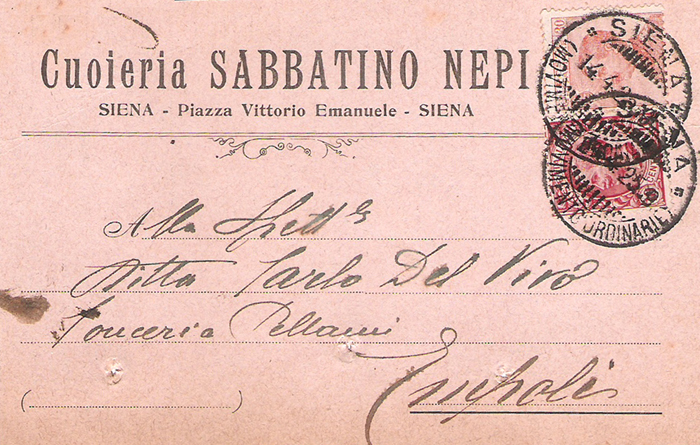 Cuoieria SABBATINO NEPI
SIENA - Piazza Vittorio Emanuele - SIENA
Alla Spett.le
Ditta Carlo Del Vivo
Conceria Pellami
Empoli
SIENA
14.4
SIENA
(MOVIMEN
ORDINARIE)
20
CENT